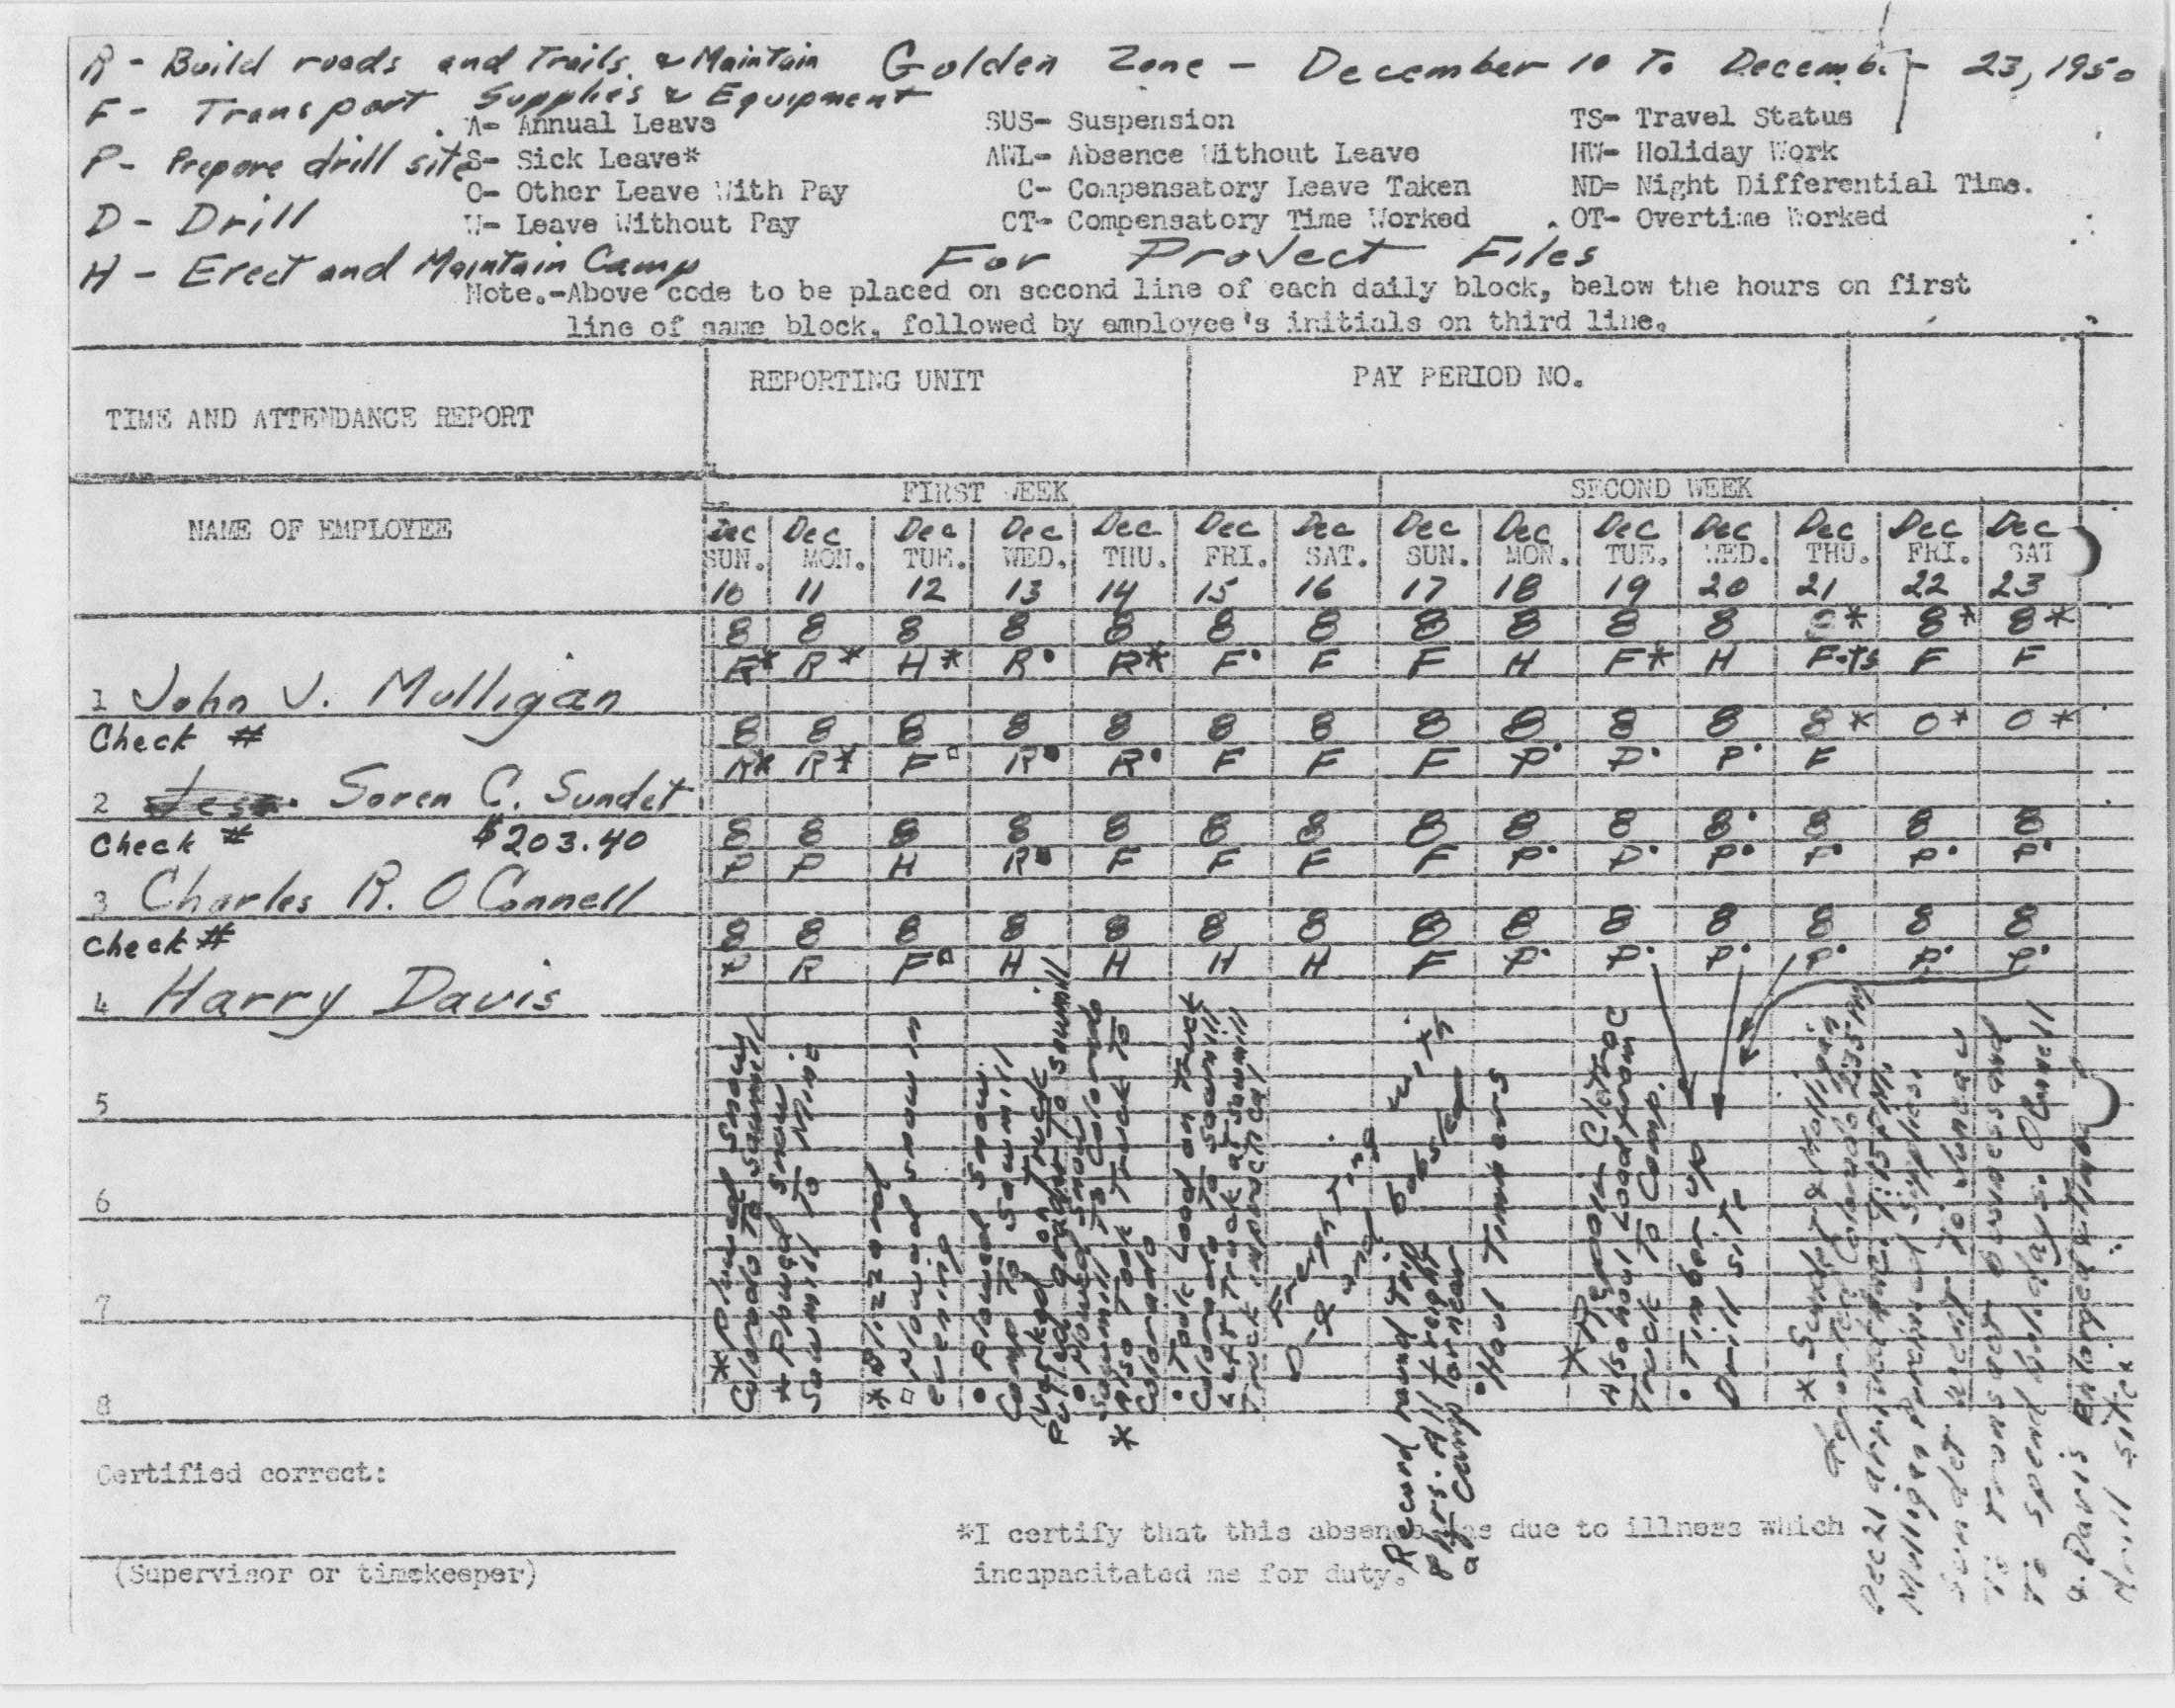 R - Build roads and Trails & Maintain Golden Zone - December 10 To December 23, 1950
F - Transport Supplies & Equipment
A- Annual Leave SUS- Suspension TS- Travel Status
P- Prepare drill site S- Sick Leave* AWL- Absence Without Leave HW- Holiday Work
O- Other Leave With Pay C- Compensatory Leave Taken ND= Night Differential Time.
D - Drill W- Leave Without Pay CT- Compensatory Time Worked OT- Overtime Worked
H - Erect and Maintain Camp For Project Files
Note.-Above code to be placed on second line of each daily block, below the hours on first
line of same block, followed by employee's initials on third line.
TIME AND ATTENDANCE REPORT
REPORTING UNIT
PAY PERIOD NO.
FIRST WEEK SECOND WEEK
NAME OF EMPLOYEE
Dec Dec Dec Dec Dec Dec Dec Dec Dec Dec Dec Dec Dec Dec
SUN. MON. TUE. WED. THU. FRI. SAT. SUN. MON. TUE. WED. THU. FRI. SAT
10 11 12 13 14 15 16 17 18 19 20 21 22 23
8 8 8 8 8 8 8 8 8 8 8 8* 8* 8*
R* R* H* R• R* F• F F H F* H F-TS F F
1 John J. Mulligan
Check #
8 8 8 8 8 8 8 8 8 8 8 8* 0* 0*
R* R* F□ R• R• F F F P• P• P• F
2 Soren C. Sundet
Check # $203.40
8 8 8 8 8 8 8 8 8 8 8• 8 8 8
P P H R• F F F F P• P• P• P• P• P•
3 Charles R. O Connell
Check #
8 8 8 8 8 8 8 8 8 8 8 8 8 8
P R F□ H H H H F P• P• P• P• P• P•
4 Harry Davis
5
6
7
8
* Plowed snow
Colorado To Sawmill
* Plowed snow
Sawmill To Mine
* Blizzard
□ Plowed snow in
evening
• Plowed snow
Camp To Sawmill
Worked on Truck
Pulled grader To Sawmill
• Plowed snow
Sawmill To Colorado
* Also Took Truck To
Colorado
• Took Load on Truck
Colorado To Sawmill
Left Truck at Sawmill
Truck impractical
Freighting
with
Record round Trip
8 hrs. All freight
at Camp or near
• Haul Timbers
* Repair Cletrac
Also haul Load from
Truck To Camp.
• Timber up
Drill site
* Sundet & Mulligan
departed Colorado 2:35 PM
Dec 21 arrived 7:15 P.M.
Mulligan Purchased Supplies.
Sundet went To Juneau
To Transact business and
To spend holidays. OConnell
& Davis Enlarged
drill site.
Certified correct:
(Supervisor or timekeeper)
*I certify that this absence was due to illness which
incapacitated me for duty.